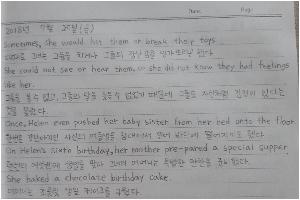 Name Page
2018년 7월 25일(금)
Sometimes, she would hit them or break their toys.
때때로 그녀는 그들을 치거나 그들의 장난감을 망가뜨리곤 했다.
She could not see or hear them, so she did not know they had feelings
like her.
그들을 볼 수 없고, 그들의 말을 들을 수 없었기 때문에 그들도 자신처럼 감정이 있다는
것을 몰랐다.
Once, Helen even pushed her baby sister from her bed onto the floor.
한번은 헬렌이 자신의 여동생을 침대에서 밀어 바닥에 떨어지게 했다.
On Helen's sixth birthday, her mother pre-pared a special supper.
헬렌의 여섯번째 생일을 맞아 그녀의 어머니는 특별한 만찬을 준비했다.
She baked a chocolate birthday cake.
어머니는 초콜릿 생일 케이크를 구웠다.